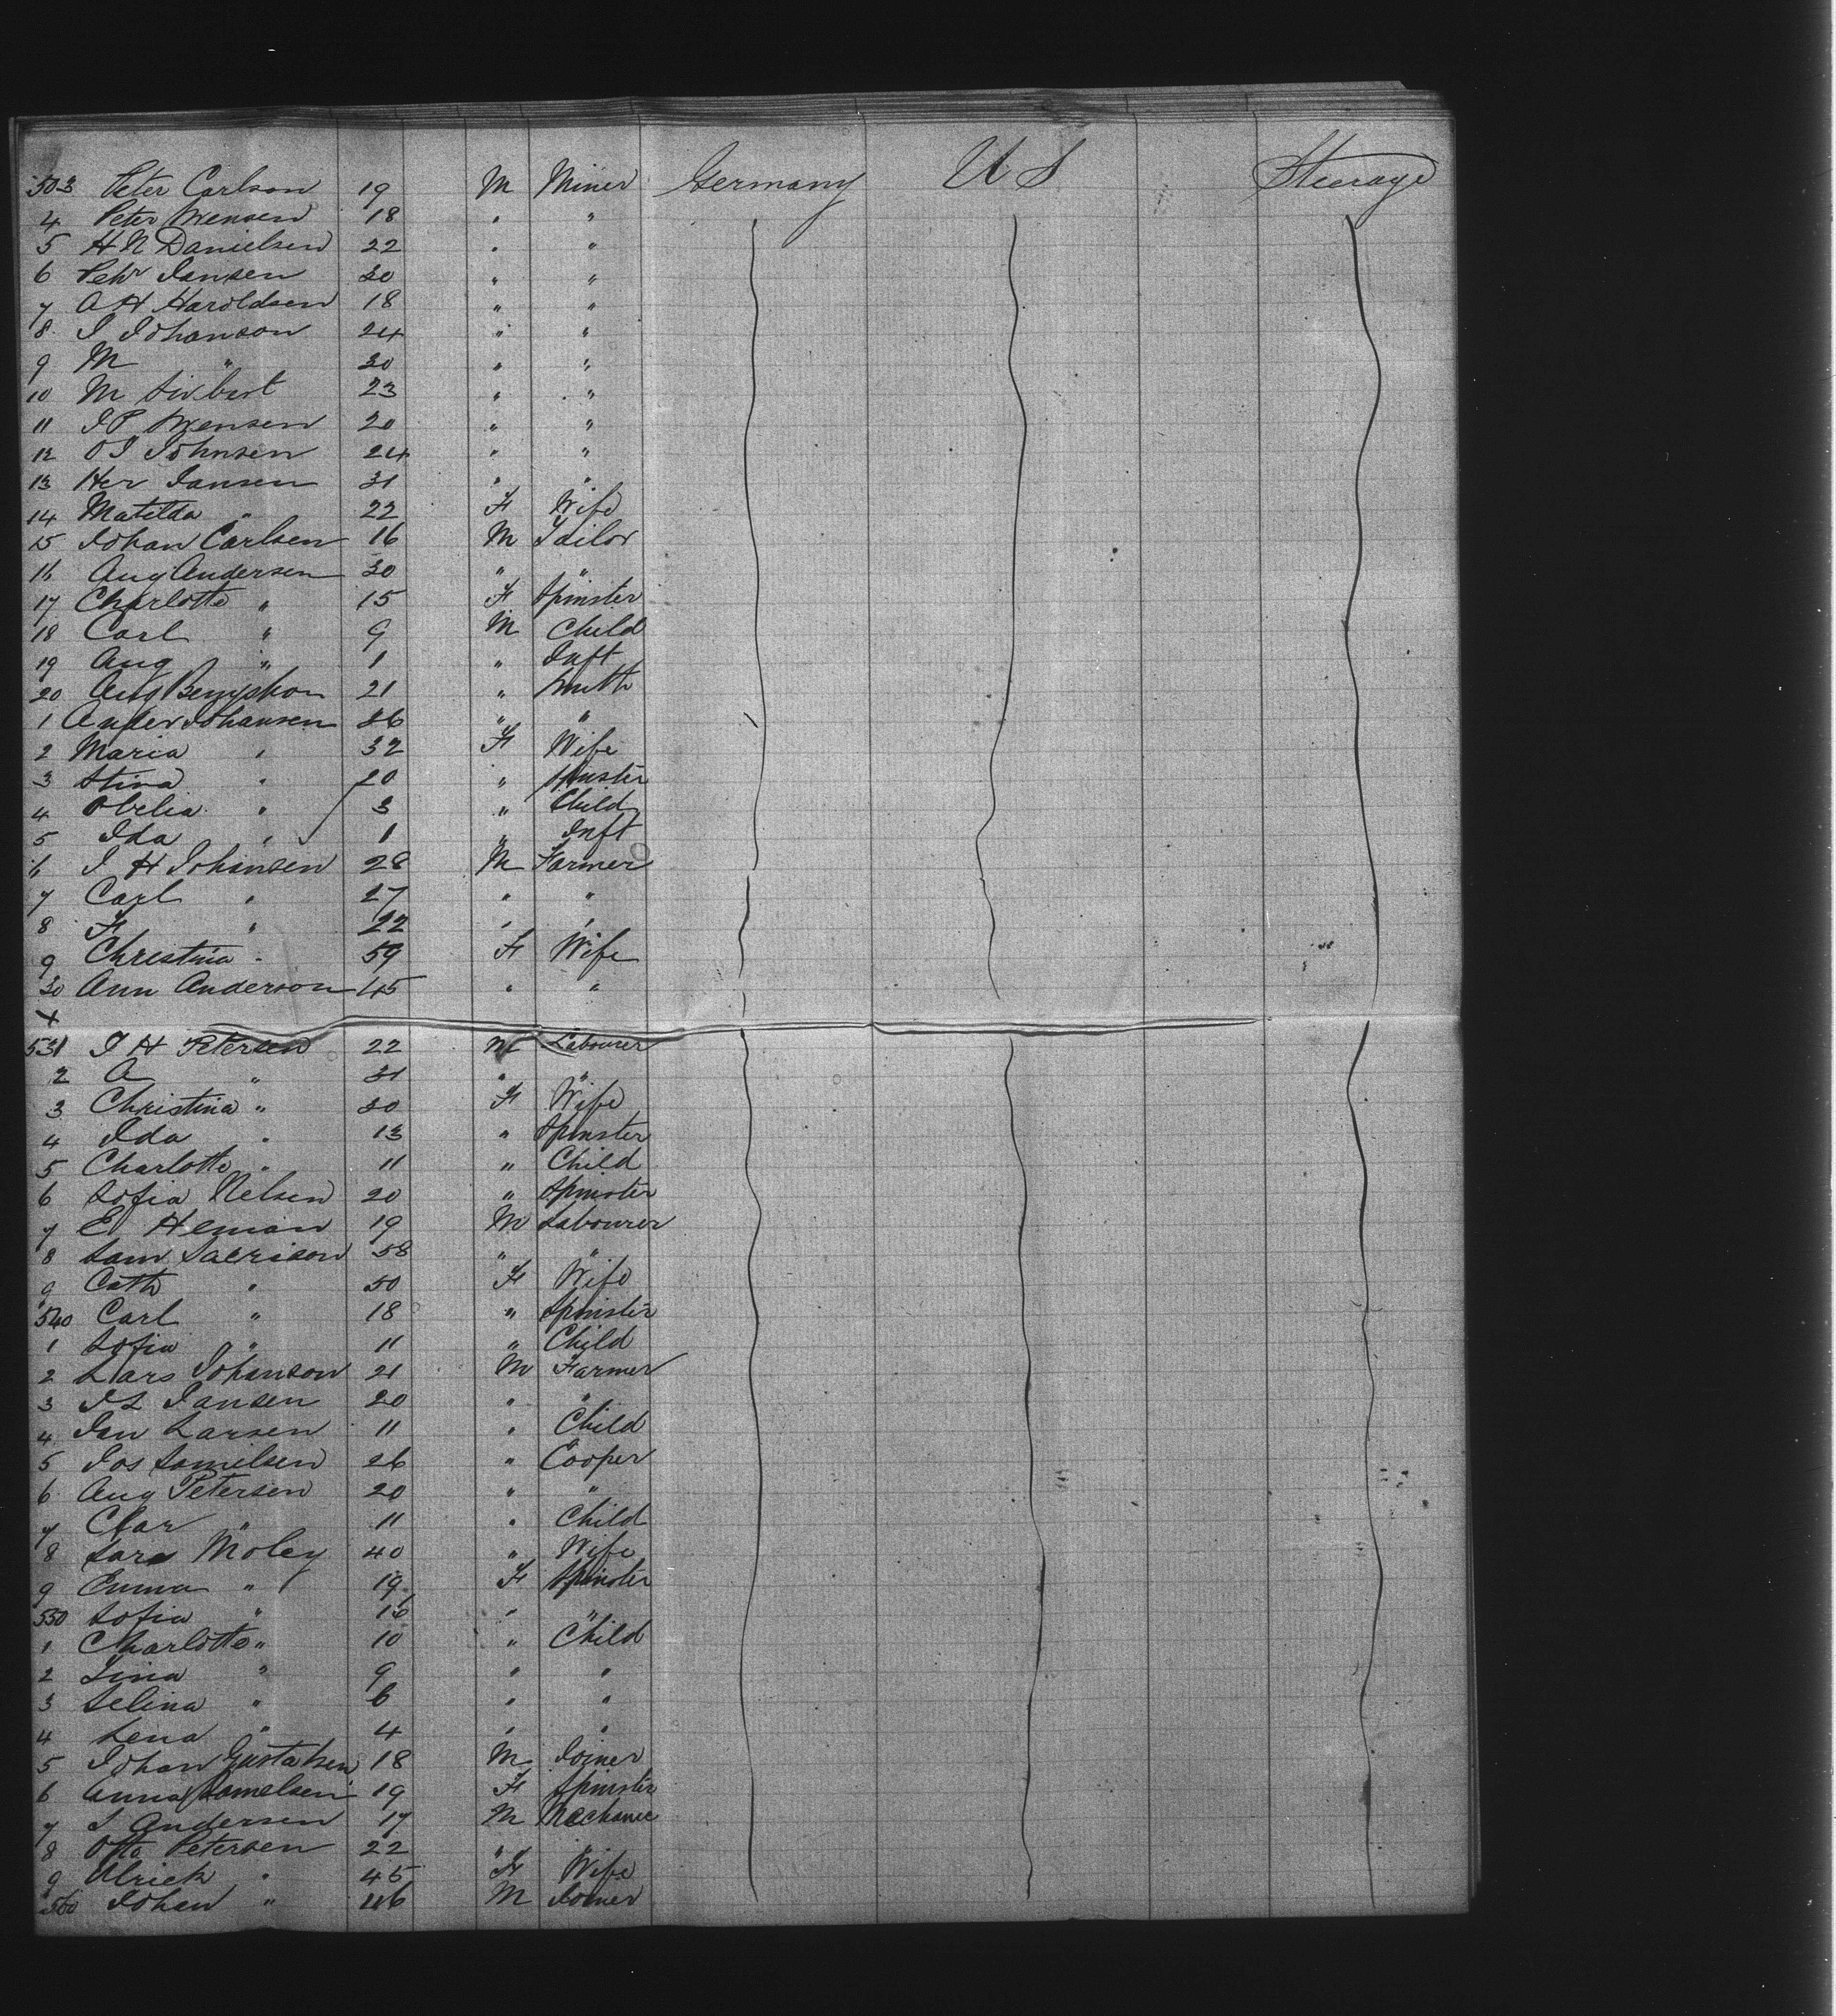 503 Peter Carlson 19 M Miner Germany U S Steerage
4 Peter 18 " "
5 H N Danielsen 22 " "
6 Petr Jansen 20 " "
7 A H Haroldsen 18 " "
8 J Johanson 24 " "
9 M " 30 " "
10 M 23 " "
11 J P 20 " "
12 O J Johnsen 24 " "
13 Her Jansen 31 " "
14 Matilda " 22 F Wife
15 Johan Carlsen 16 M Tailor
16 Aug Andersen 30 " "
17 Charlotte " 15 F Spinster
18 Carl " 9 M Child
19 Aug " 1 " Inft
20 Aug 21 " Smith
1 Ander Johansen 36 " "
2 Maria " 32 F Wife
3 Stina " 20 " Spinster
4 " 3 " Child
5 Ida " 1 " Inft
6 J H Johansen 28 M Farmer
7 Carl " 27 " "
8 F " 22 " "
9 Christina " 59 F Wife
30 Ann Anderson 45 " "
x
531 J H Petersen 22 M Labourer
2 A " 31 " "
3 Christina " 30 F Wife
4 Ida " 13 " Spinster
5 Charlotte " 11 " Child
6 Sofia Nelsen 20 " Spinster
7 El Heman 19 M Labourer
8 Sam 58 " "
9 Cath " 50 F Wife
540 Carl " 18 " Spinster
1 Sofia " 11 " Child
2 Lars Johanson 21 M Farmer
3 J L Jansen 20 " "
4 Jan Larsen 11 " Child
5 Jos Samilsen 26 " Cooper
6 Aug Petersen 20 " "
7 Char " 11 " Child
8 Sara Moley 40 " Wife
9 Emma " 19 F Spinster
550 Sofia " 16 " "
1 Charlotte " 10 " Child
2 Lina " 9 " "
3 Selina " 6 " "
4 Lena " 4 " "
5 Johan Gustafsen 18 M Joiner
6 Anna Samelsen 19 F Spinster
7 J Andersen 17 M Mechanic
8 Otto Petersen 22 " "
9 Ulrick " 45 F Wife
560 Johan " 46 M Joiner